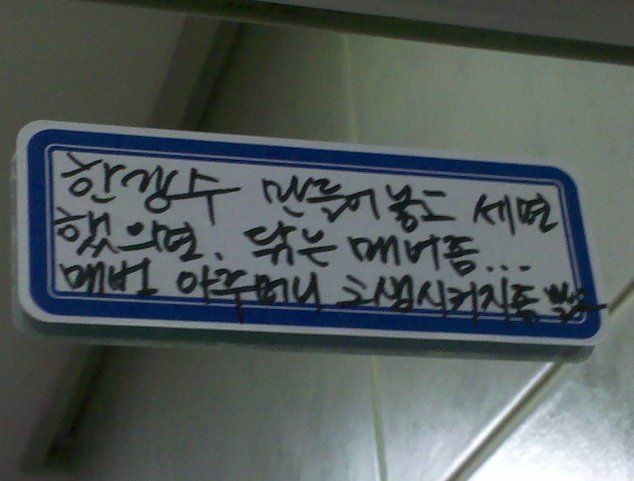 한강수 만들어 놓고 세면
했으면. 닦는 매너좀...
매번 아주머니 고생시키지좀 말공